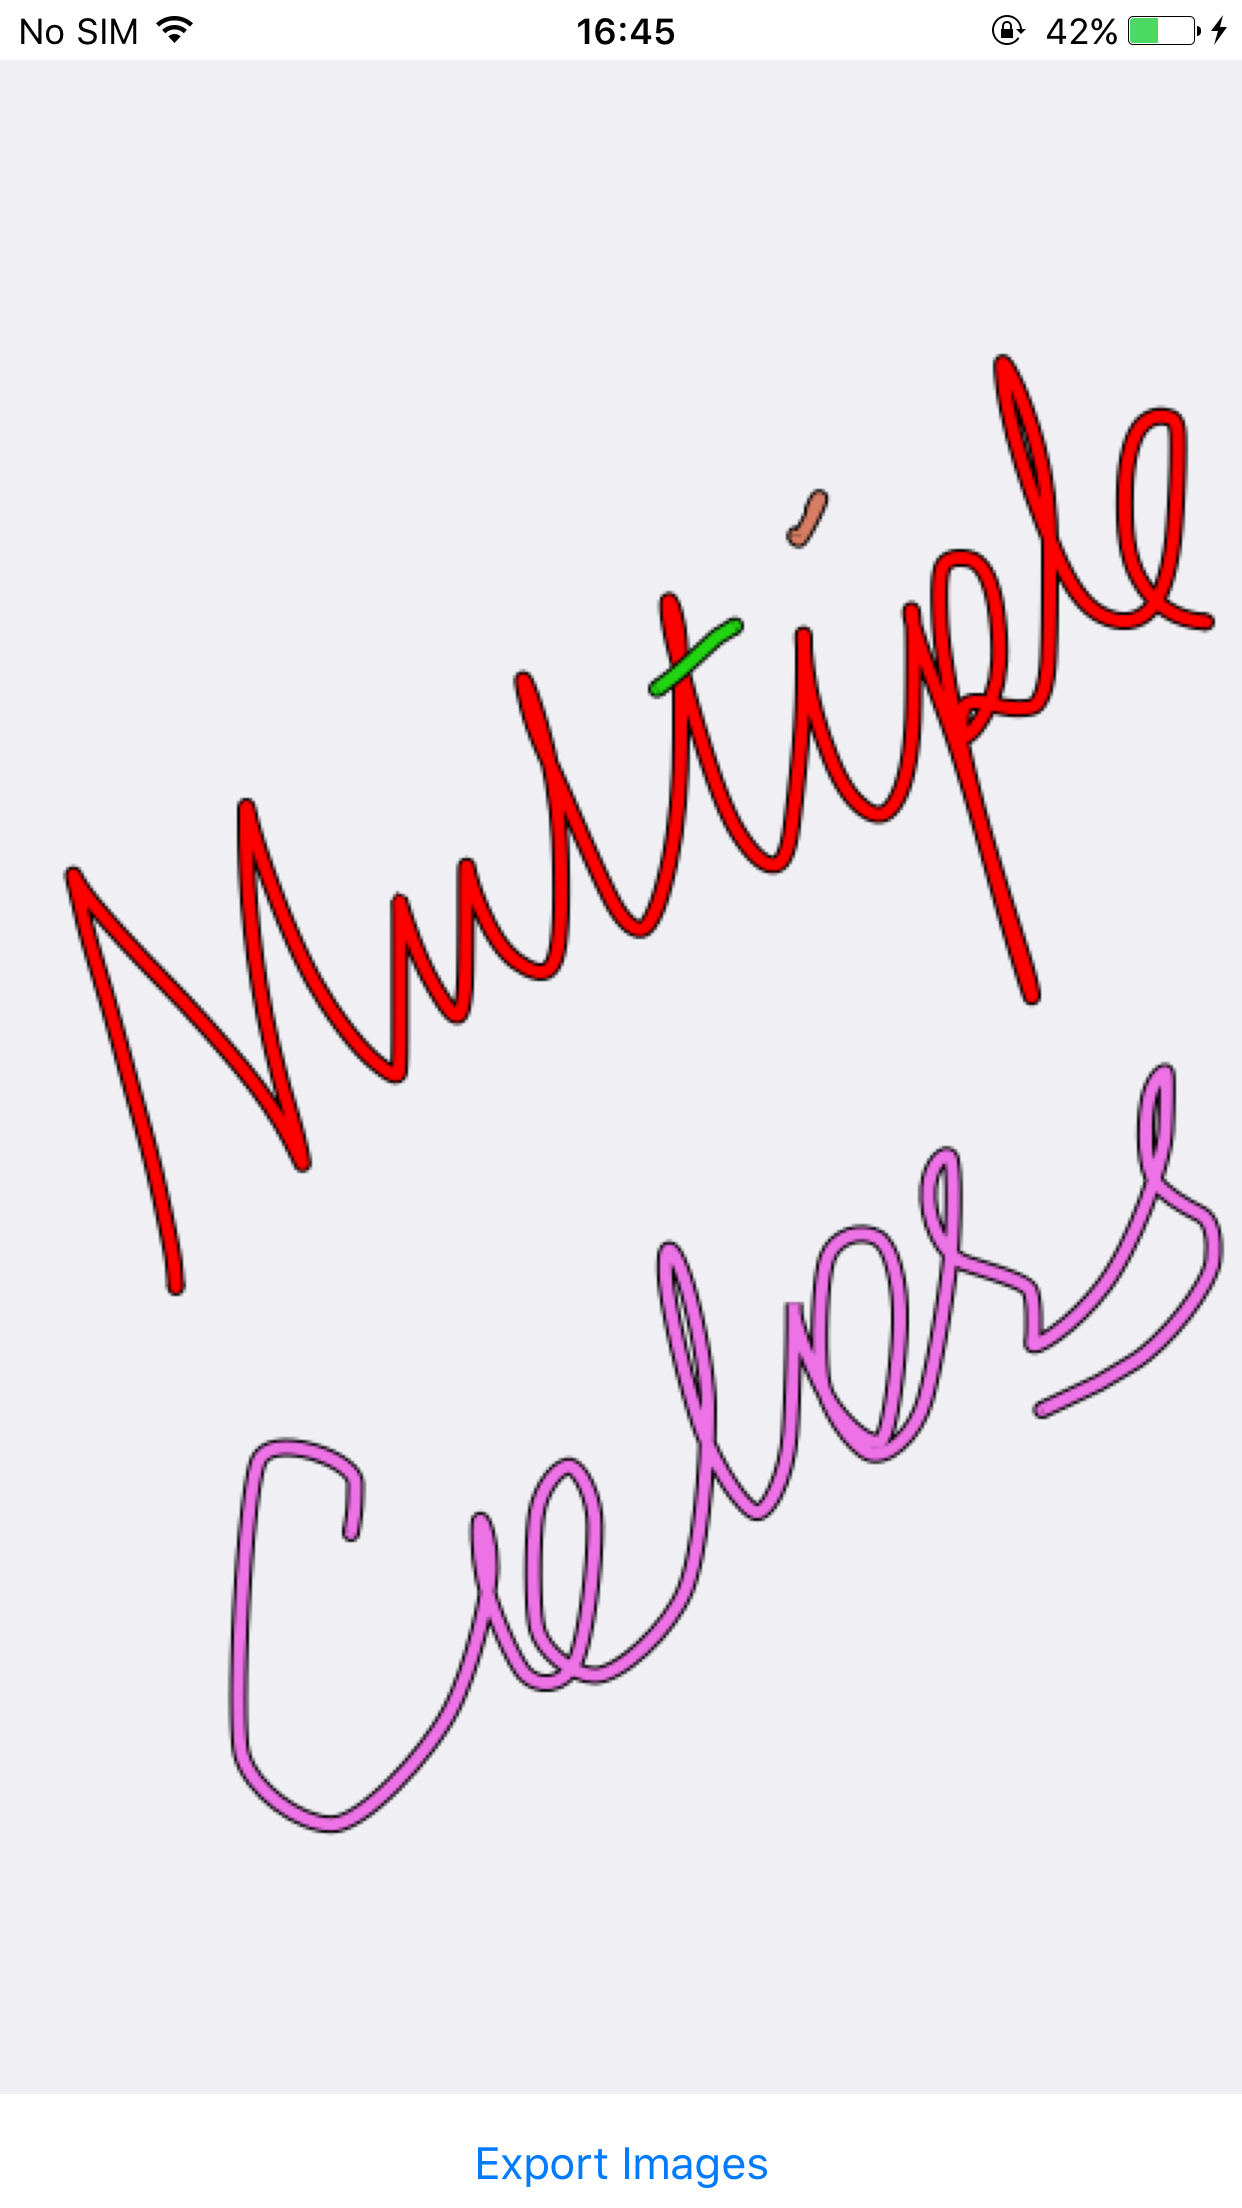 No SIM 16:45 42%
Multiple
Celors
Export Images